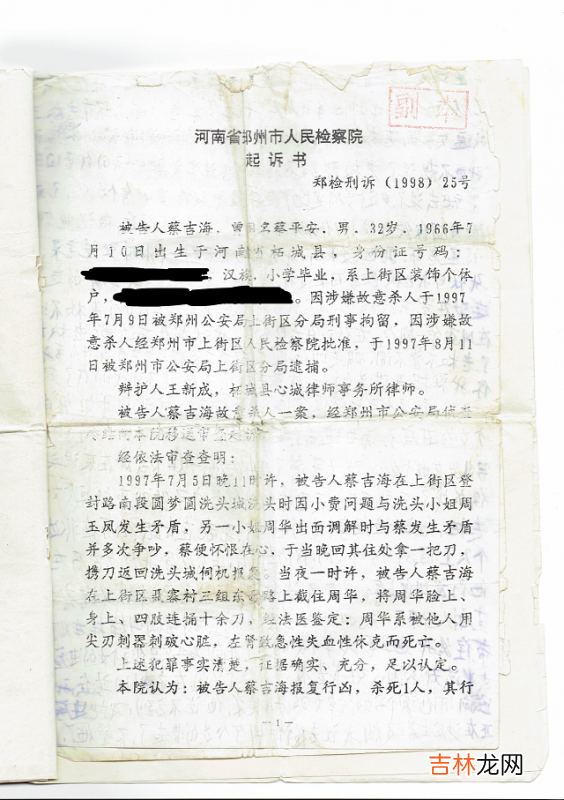 副本
河南省郑州市人民检察院
起诉书
郑检刑诉(1998)25号
被告人蔡吉海,曾用名蔡平安,男,32岁,1966年7
月10日出生于河南省柘城县,身份证号码:
,汉族,小学毕业,系上街区装饰个体
户,。因涉嫌故意杀人于1997
年7月9日被郑州公安局上街区分局刑事拘留,因涉嫌故
意杀人经郑州市上街区人民检察院批准,于1997年8月11
日被郑州市公安局上街区分局逮捕。
辩护人王新成,柘城县心城律师事务所律师。
被告人蔡吉海故意杀人一案,经郑州市公安局侦查
本院移送审查起诉
经依法审查查明:
1997年7月5日晚11时许,被告人蔡吉海在上街区登
封路南段圆梦圆洗头城洗头时因小费问题与洗头小姐周
玉凤发生矛盾,另一小姐周华出面调解时与蔡发生矛盾
并多次争吵,蔡便怀恨在心,于当晚回其住处拿一把刀,
携刀返回洗头城伺机报复。当夜一时许,被告人蔡吉海
在上街区聂寨村三组东路上截住周华,将周华脸上、
身上、四肢连捅十余刀,经法医鉴定:周华系被他人用
尖刃刺器刺破心脏,左肾致急性失血性休克而死亡。
上述犯罪事实清楚,证据确实、充分,足以认定。
本院认为:被告人蔡吉海报复行凶,杀死1人,其行
— 1 —
吉林龙网